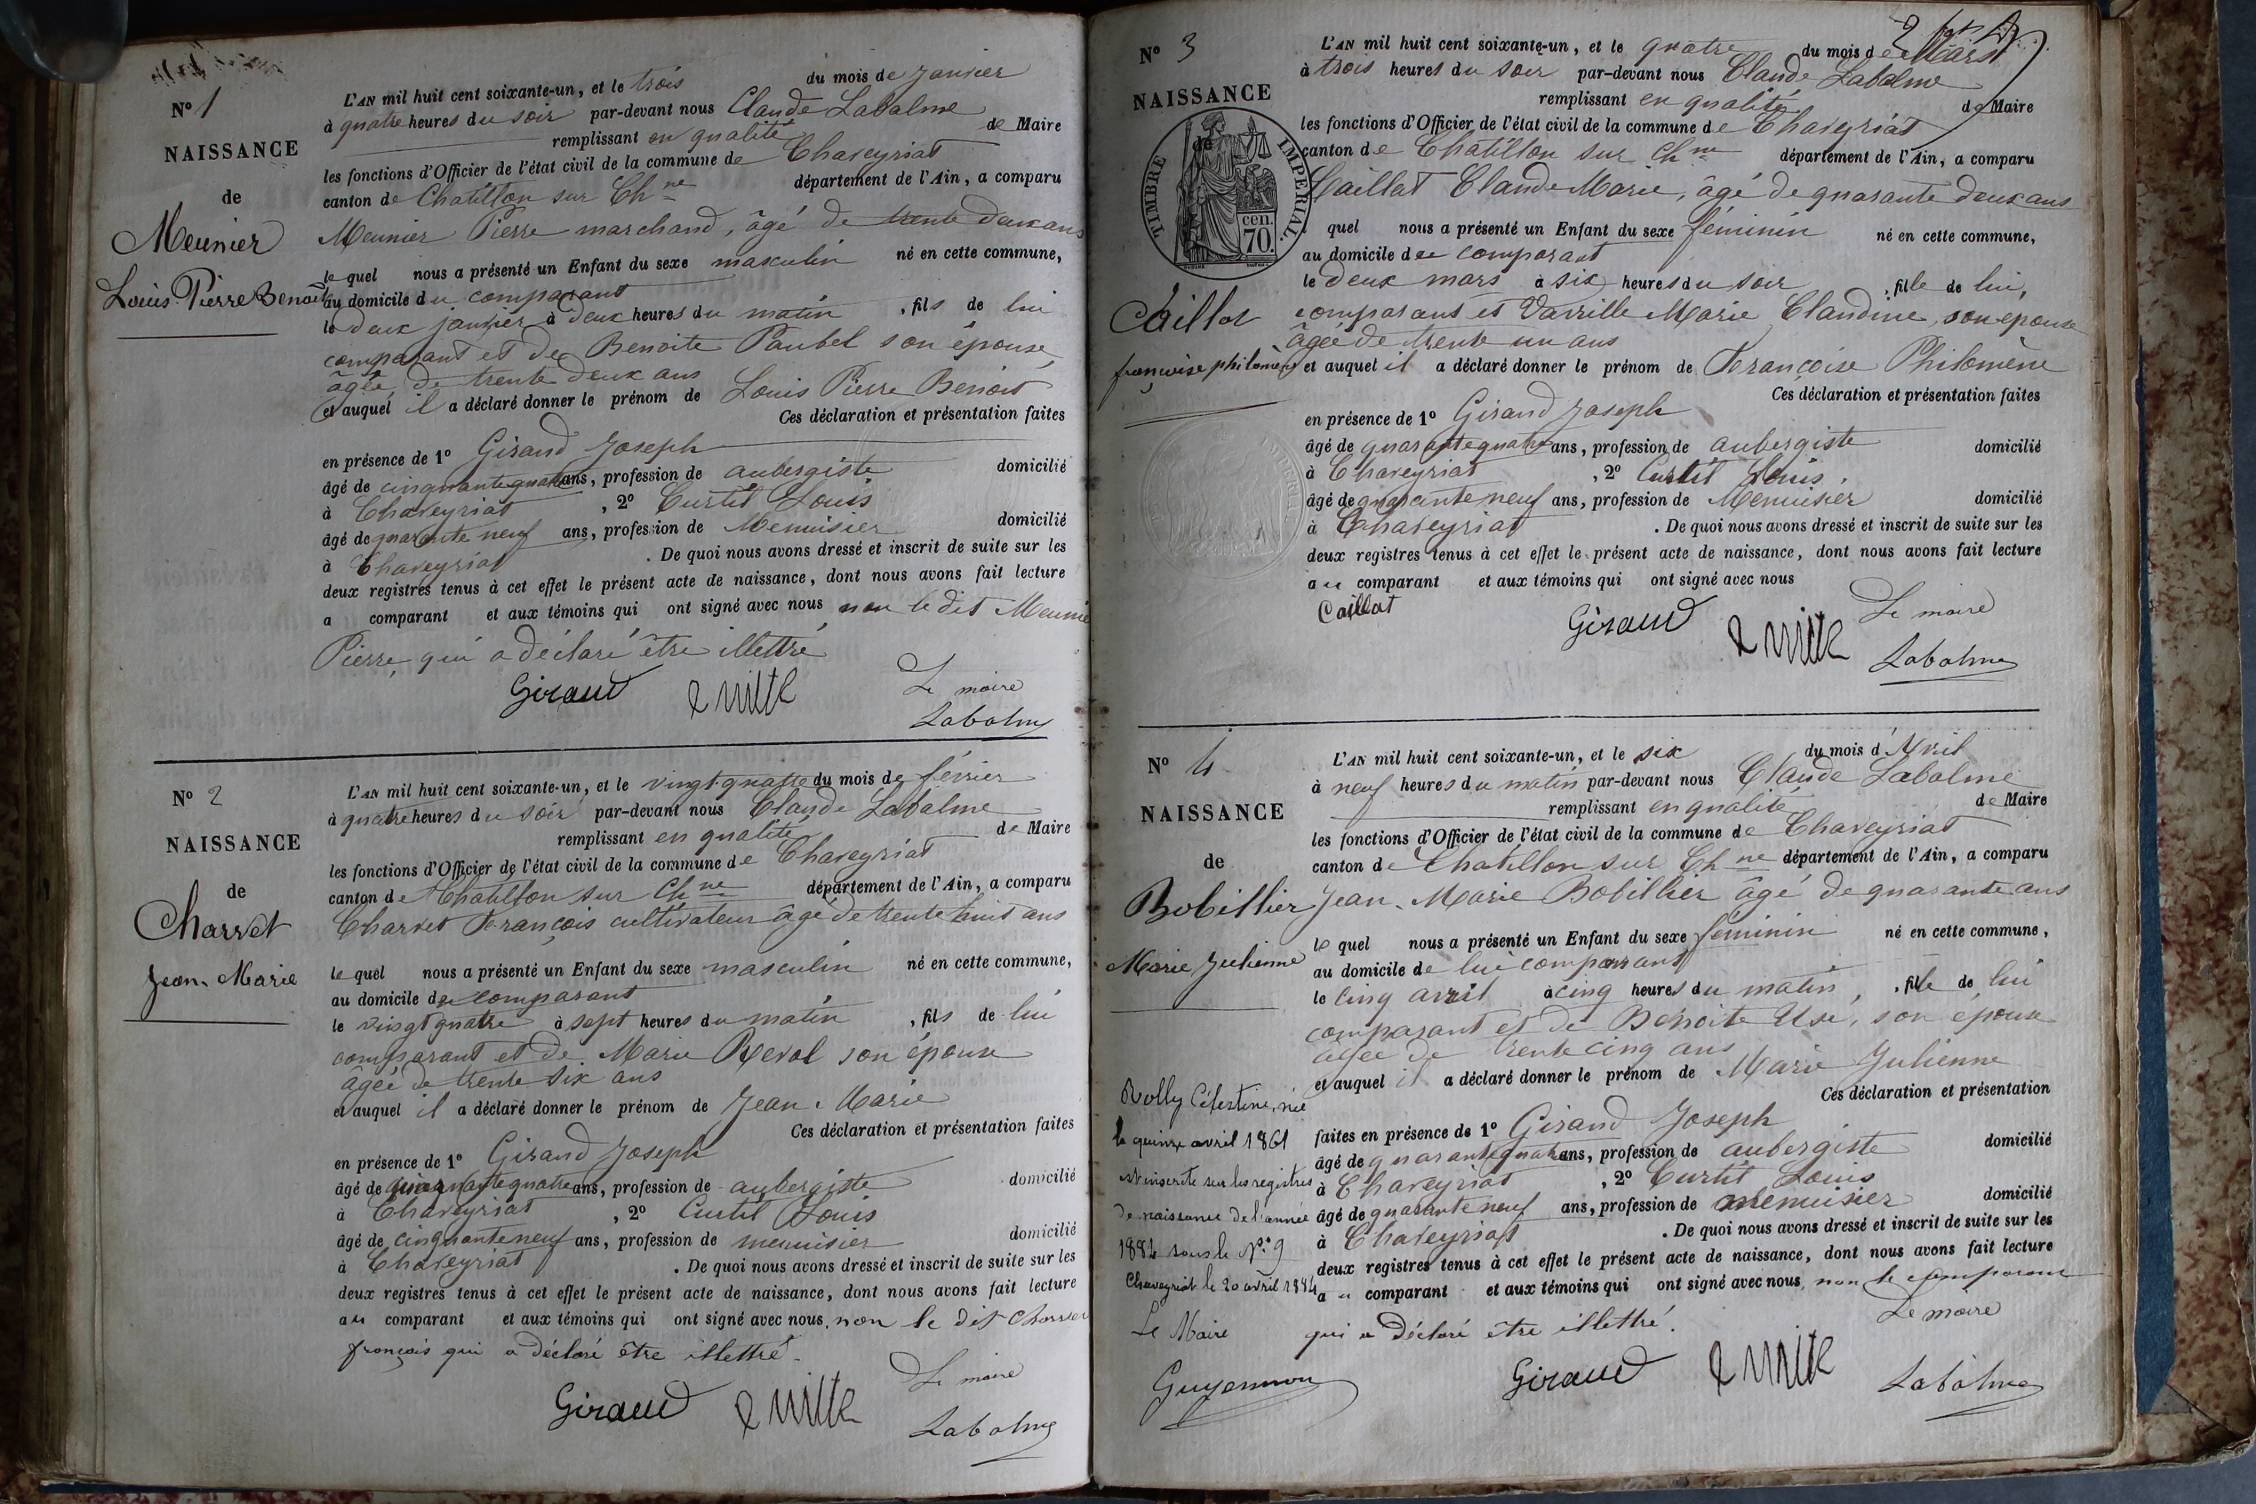 N° 1
NAISSANCE
de
Meunier
Louis Pierre Benoit
L'AN mil huit cent soixante-un, et le trois du mois de Janvier
à quatre heures du soir par-devant nous Claude Labalme
remplissant en qualité de Maire
les fonctions d'Officier de l'état civil de la commune de Chaveyriat
canton de Chatillon sur Ch.ne département de l'Ain, a comparu
Meunier Pierre marchand, âgé de trente deux ans
le quel nous a présenté un Enfant du sexe masculin né en cette commune,
au domicile du comparant
le deux janvier à deux heures du matin, fils de lui
comparant et de Benoite Paubel son épouse,
âgée de trente deux ans
et auquel il a déclaré donner le prénom de Louis Pierre Benoit
Ces déclaration et présentation faites
en présence de 1° Giraud Joseph
âgé de cinquante quatre ans, profession de aubergiste domicilié
à Chaveyriat, 2° Curtil Louis
âgé de quarante neuf ans, profession de Menuisier domicilié
à Chaveyriat. De quoi nous avons dressé et inscrit de suite sur les
deux registres tenus à cet effet le présent acte de naissance, dont nous avons fait lecture
a comparant et aux témoins qui ont signé avec nous non le dit Meunier
Pierre, qui a déclaré être illettré
Giraud
Le maire
Labalme
N° 2
NAISSANCE
de
Charvet
Jean-Marie
L'AN mil huit cent soixante-un, et le vingt-quatre du mois de février
à quatre heures du soir par-devant nous Claude Labalme
remplissant en qualité de Maire
les fonctions d'Officier de l'état civil de la commune de Chaveyriat
canton de Chatillon sur Ch.ne département de l'Ain, a comparu
Charvet François cultivateur âgé de trente huit ans
le quel nous a présenté un Enfant du sexe masculin né en cette commune,
au domicile du comparant
le vingt quatre à sept heures du matin, fils de lui
comparant et de Marie Reval son épouse
âgée de trente six ans
et auquel il a déclaré donner le prénom de Jean-Marie
Ces déclaration et présentation faites
en présence de 1° Giraud Joseph
âgé de quatre ans, profession de aubergiste domicilié
à Chaveyriat, 2° Curtil Louis
âgé de cinquante neuf ans, profession de menuisier domicilié
à Chaveyriat. De quoi nous avons dressé et inscrit de suite sur les
deux registres tenus à cet effet le présent acte de naissance, dont nous avons fait lecture
au comparant et aux témoins qui ont signé avec nous, non le dit Charvet
françois qui a déclaré être illettré.
Giraud
Le maire
Labalme
N° 3
NAISSANCE
de
TIMBRE IMPERIAL
cen.
70.
Caillat
françoise philomène
L'AN mil huit cent soixante-un, et le quatre du mois de Mars
à trois heures du soir par-devant nous Claude Labalme
remplissant en qualité de Maire
les fonctions d'Officier de l'état civil de la commune de Chaveyriat
canton de Chatillon sur Ch.ne département de l'Ain, a comparu
Caillat Claude Marie, âgé de quarante deux ans
quel nous a présenté un Enfant du sexe féminin né en cette commune,
au domicile du comparant
le deux mars à six heures du soir, fille de lui,
comparant et Varille Marie Claudine, son épouse
âgée de trente un ans
et auquel il a déclaré donner le prénom de Françoise Philomène
Ces déclaration et présentation faites
en présence de 1° Giraud Joseph
âgé de quarante quatre ans, profession de aubergiste domicilié
à Chaveyriat, 2° Curtil Louis
âgé de quarante neuf ans, profession de Menuisier domicilié
à Chaveyriat. De quoi nous avons dressé et inscrit de suite sur les
deux registres tenus à cet effet le présent acte de naissance, dont nous avons fait lecture
au comparant et aux témoins qui ont signé avec nous
Caillat
Giraud
Le maire
Labalme
N° 4
NAISSANCE
de
Bobillier
Marie Julienne
L'AN mil huit cent soixante-un, et le six du mois d'Avril
à neuf heures du matin par-devant nous Claude Labalme
remplissant en qualité de Maire
les fonctions d'Officier de l'état civil de la commune de Chaveyriat
canton de Chatillon sur Ch.ne département de l'Ain, a comparu
Jean-Marie Bobillier âgé de quarante ans
le quel nous a présenté un Enfant du sexe féminin né en cette commune,
au domicile de lui comparant
le cinq avril à cinq heures du matin, fille de lui
comparant et de Benoite Usé, son épouse
âgée de trente cinq ans
et auquel il a déclaré donner le prénom de Marie Julienne
Ces déclaration et présentation
faites en présence de 1° Giraud Joseph
âgé de quarante quatre ans, profession de aubergiste domicilié
à Chaveyriat, 2° Curtil Louis
âgé de quarante neuf ans, profession de menuisier domicilié
à Chaveyriat. De quoi nous avons dressé et inscrit de suite sur les
deux registres tenus à cet effet le présent acte de naissance, dont nous avons fait lecture
au comparant et aux témoins qui ont signé avec nous, non le comparant
qui a déclaré être illettré.
Le maire
Giraud
Labalme
Rolly Célestine, née
le quinze avril 1861
est inscrite sur les registres
de naissance de l'année
1884 sous le N° 9
Chaveyriat le 20 avril 1884
Le Maire
Guyennon